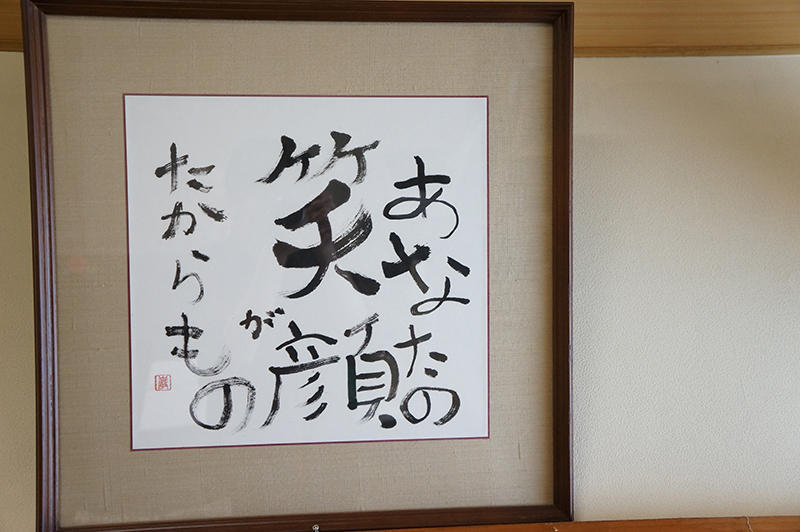 あなたの
笑顔が
たからもの